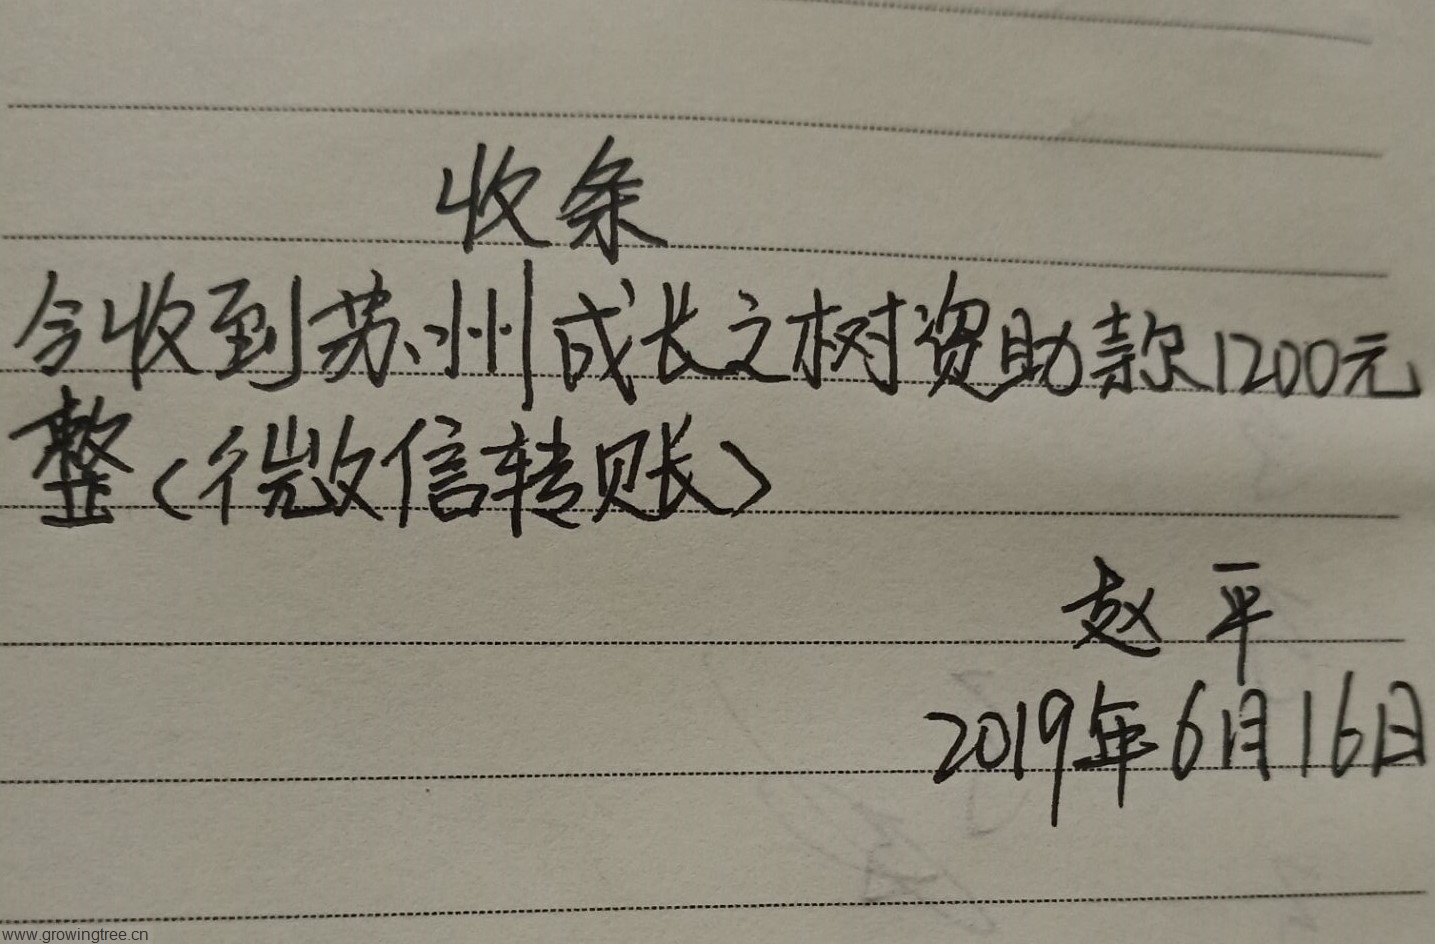 收条
今收到苏州成长之树资助款1200元
整（微信转账）
赵平
2019年6月16日
www.growingtree.cn